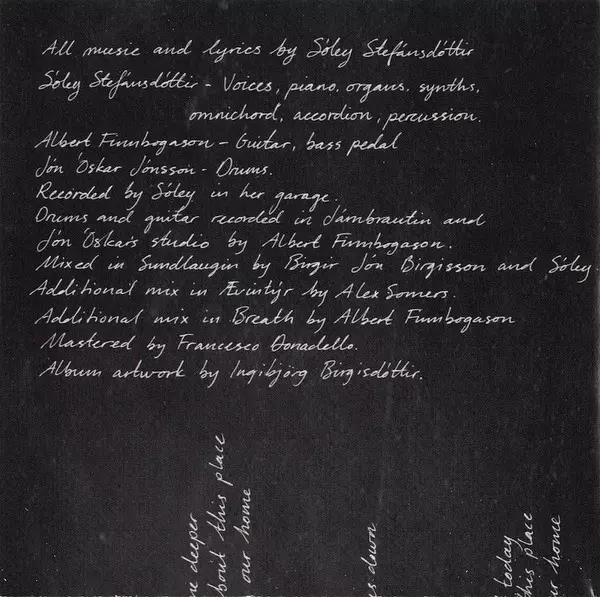 All music and lyrics by Sóley Stefánsdóttir
Sóley Stefánsdóttir - Voices, piano, organs, synths,
omnichord, accordion, percussion.
Albert Finnbogason - Guitar, bass pedal
Jón Óskar Jónsson - Drums.
Recorded by Sóley in her garage.
Drums and guitar recorded in Járnbrautin and
Jón Óskars studio by Albert Finnbogason.
Mixed in Sundlaugin by Birgir Jón Birgisson and Sóley.
Additional mix in Ævintýr by Alex Somers.
Additional mix in Breath by Albert Finnbogason
Mastered by Francesco Donadello.
Album artwork by Ingibjörg Birgisdóttir.
ne deeper
bout this place
our home
ys down
today
this place
ur home